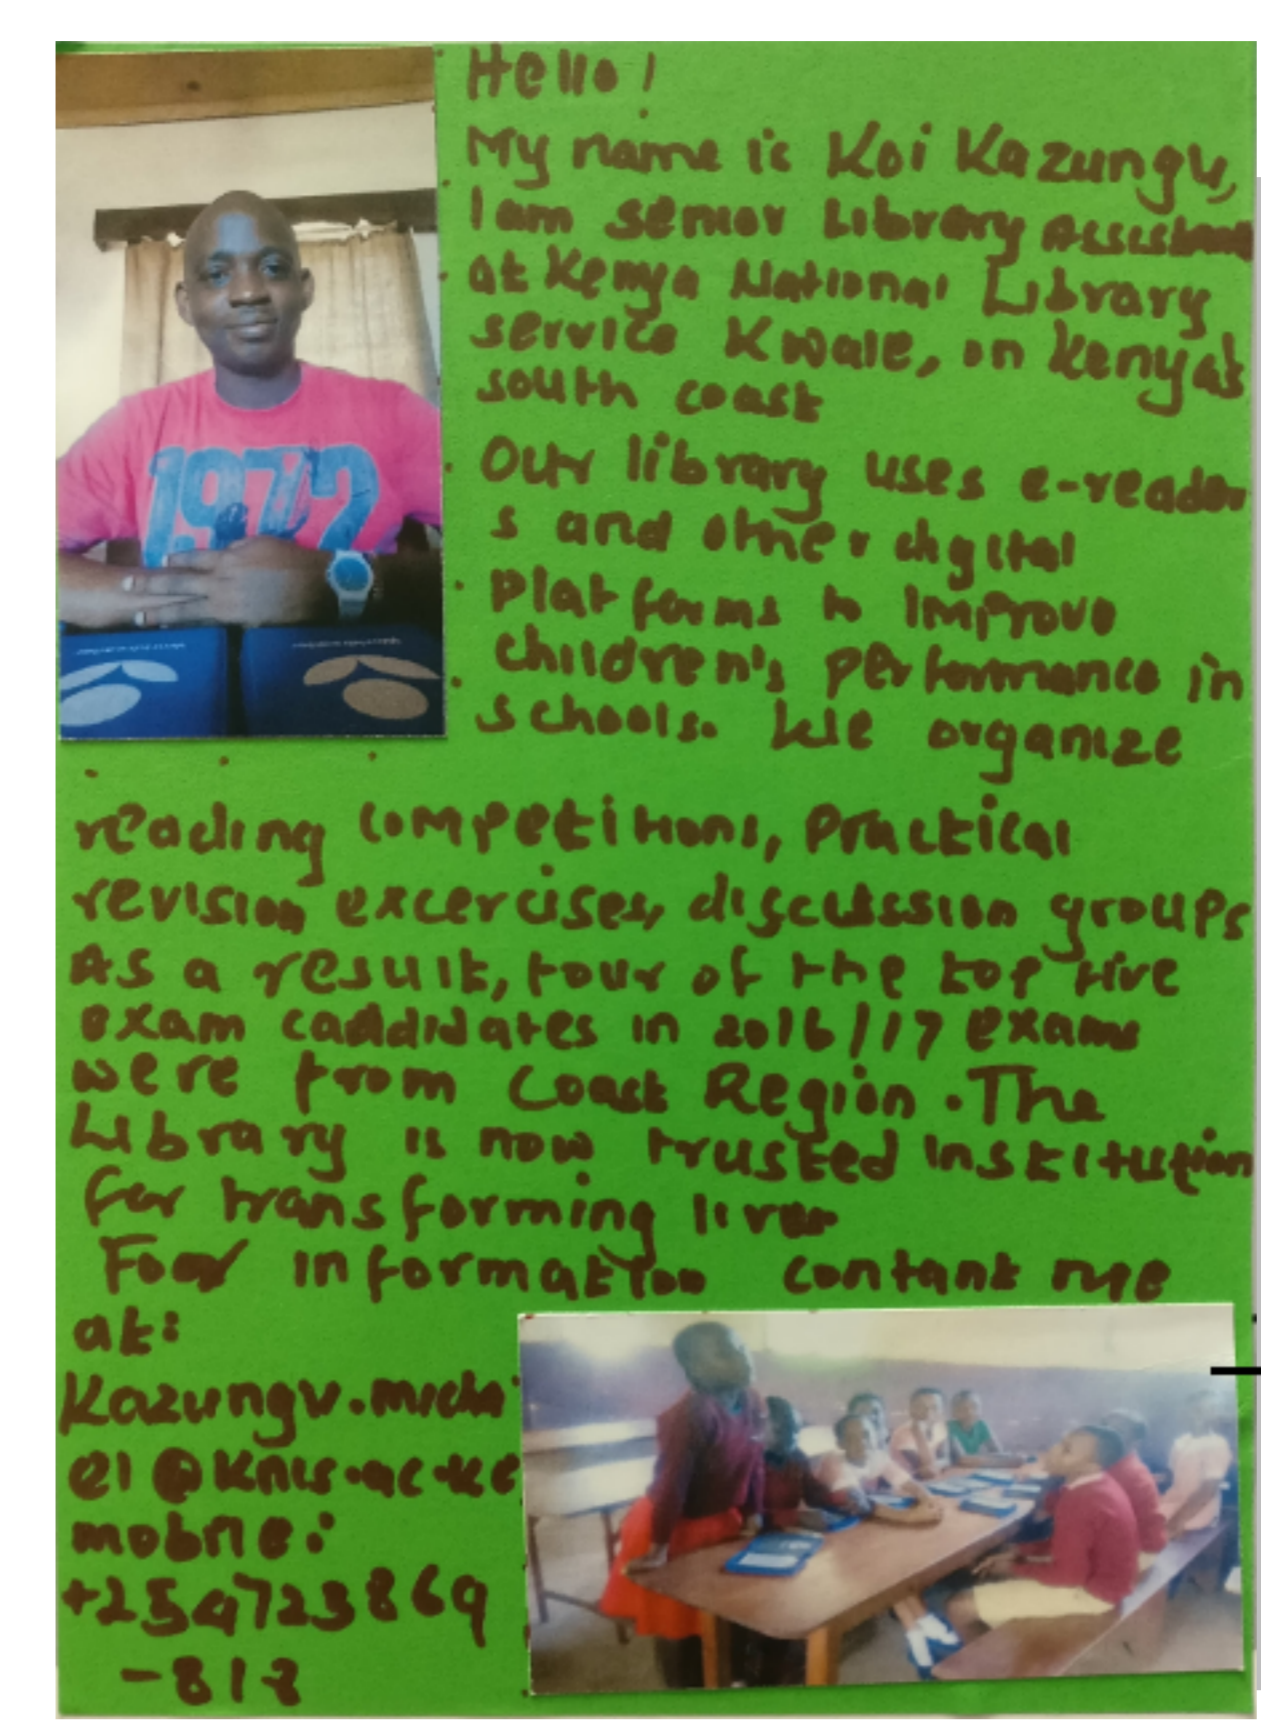 Hello!
My name is Koi Kazungu,
I am senior Library Assistant
at Kenya National Library
service Kwale, on Kenya's
south coast
Our library uses e-reader
s and other digital
platforms to improve
children's performance in
schools. We organize
reading competitions, practical
revision excercises, discussion groups
As a result, four of the top five
exam caddidates in 2016/17 exams
were from Coast Region. The
Library is now trusted institution
for transforming lives
For information contant me
at:
Kazungu.micha
el@knls.ac.ke
mobile:
+254723869
-818
1972